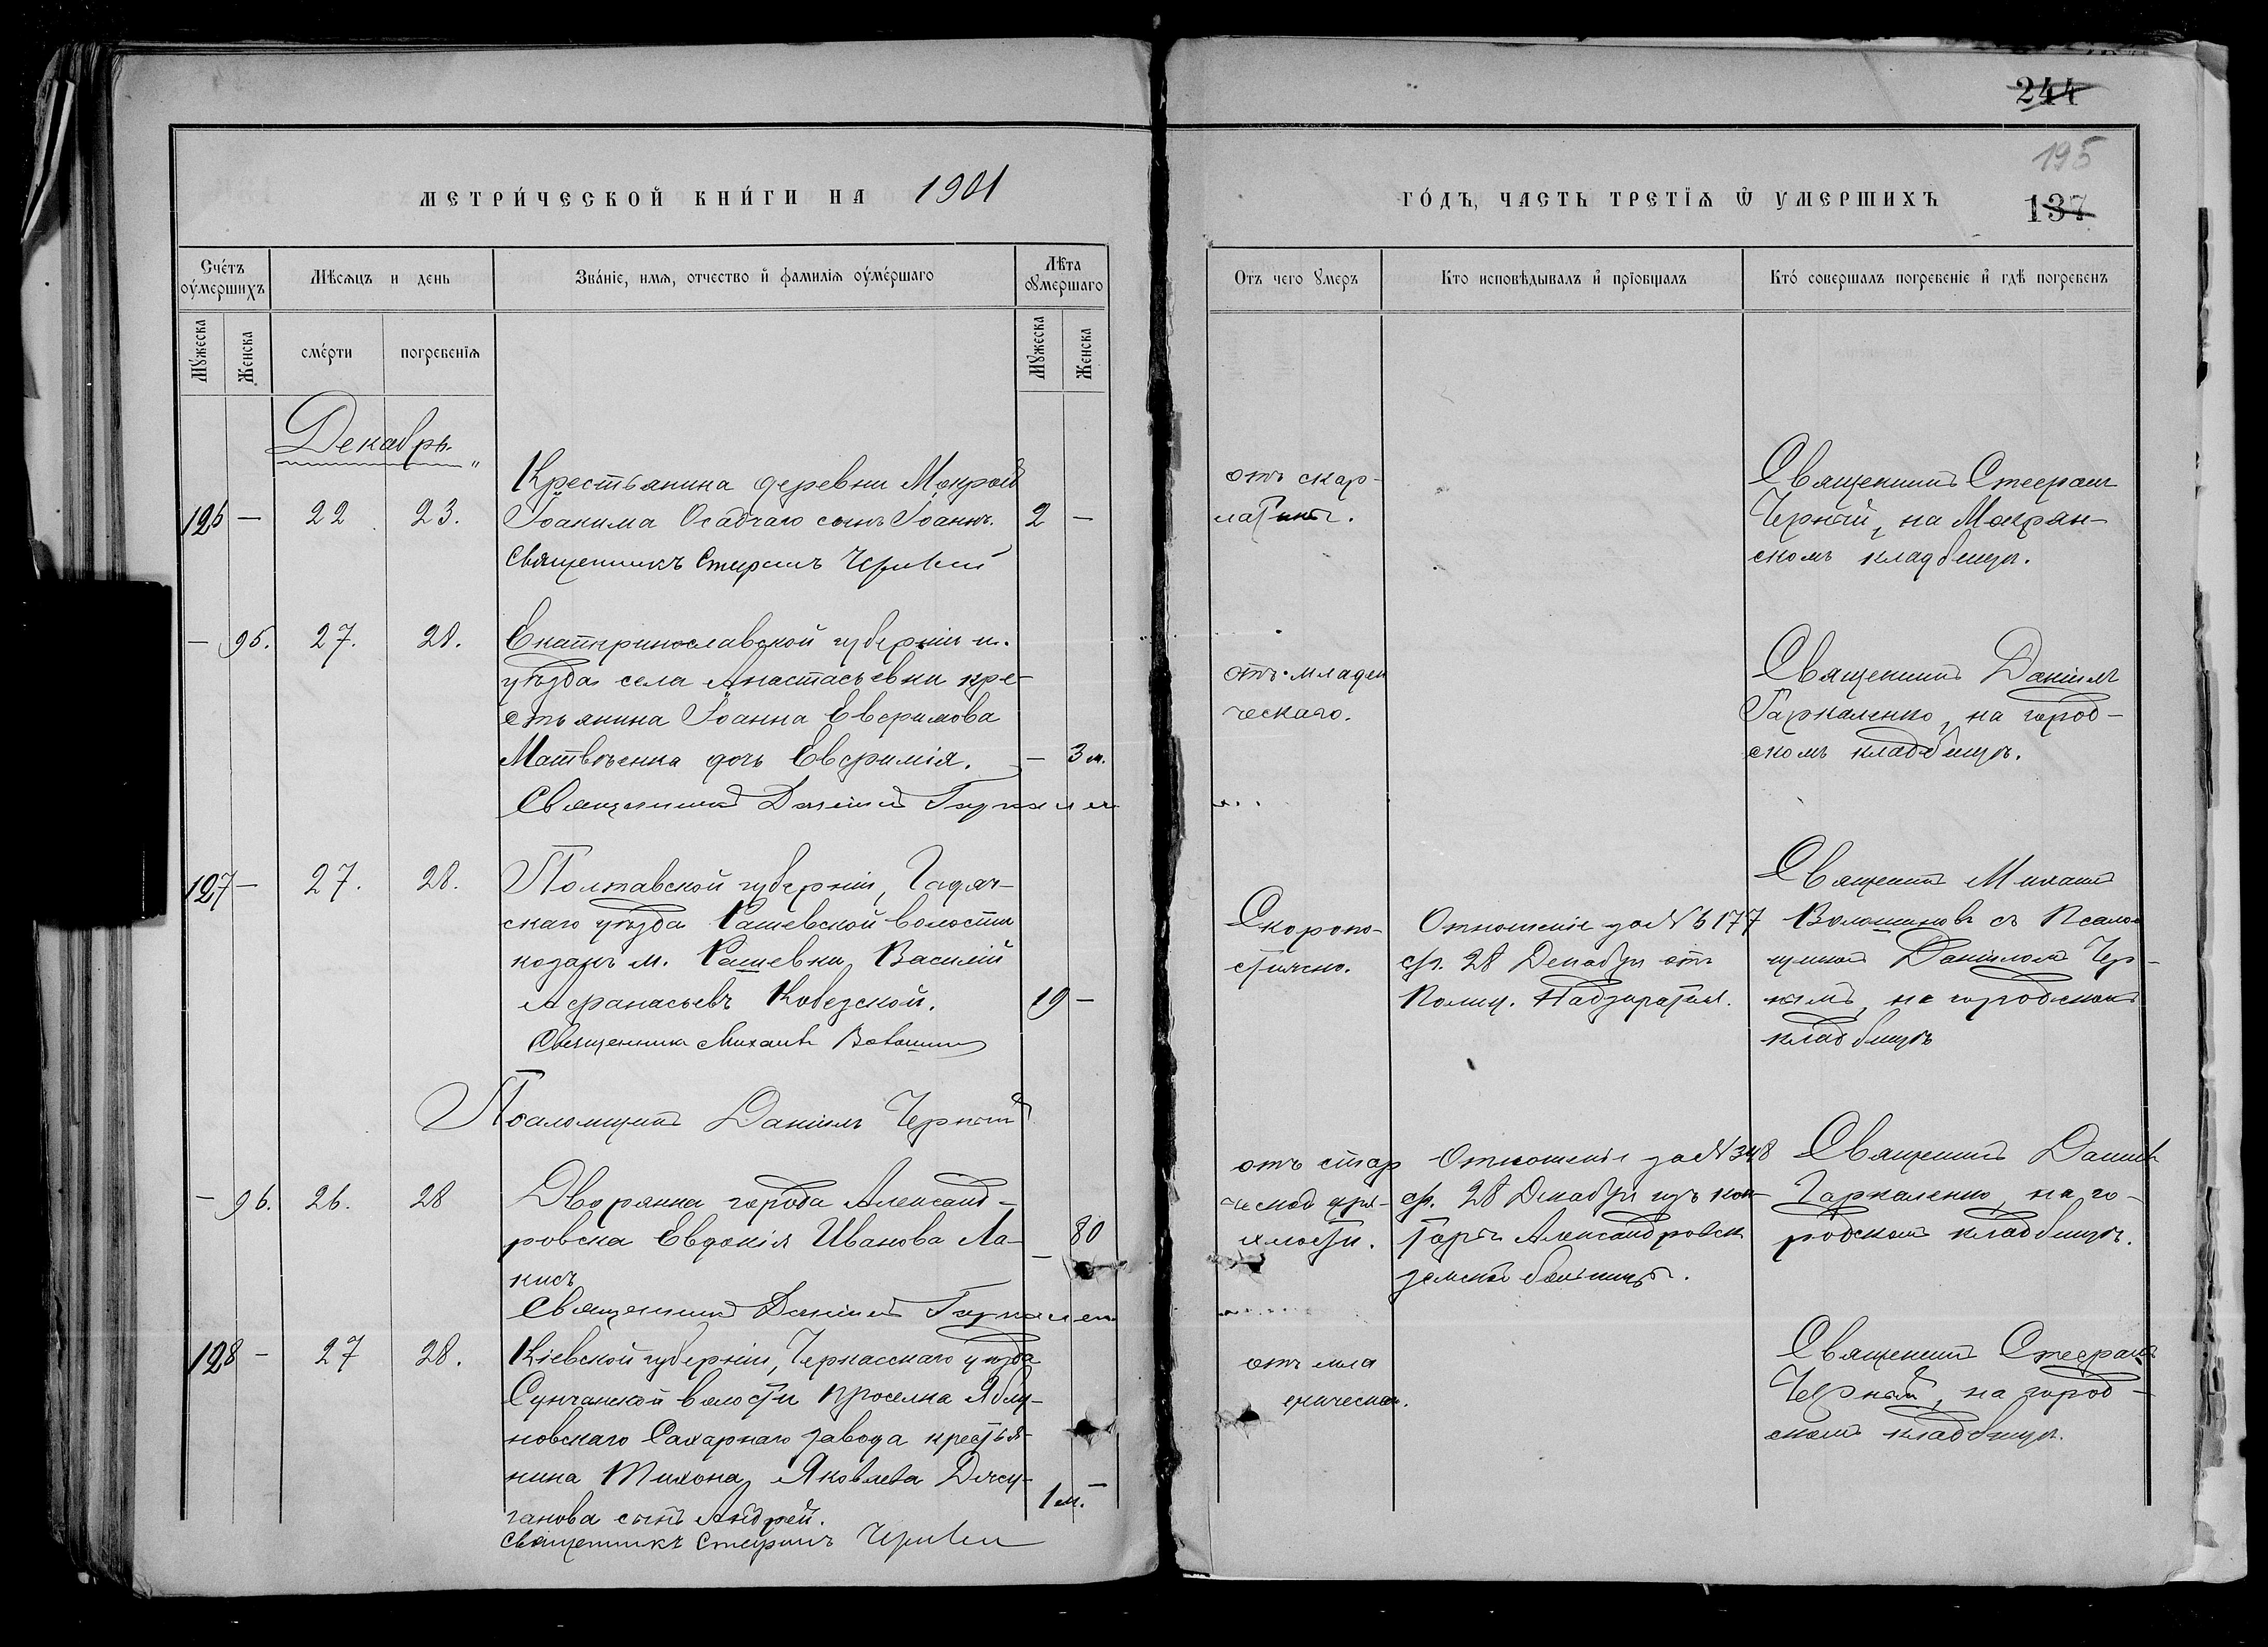 244
195
137
МЕТРИ́ЧЕСКОЙ КНИ́ГИ НА 1901
ГО́ДЪ, ЧАСТЬ ТРЕТІѦ Ѿ УМЕРШИХЪ
Сче́тъ оу҆́мершихъ
Мѣсѧцъ и день
Зва́ніе, имѧ, отчество и҆ фамиліѧ оу҆ме́ршаго
Лѣта оу҆мершаго
Мꙋ́жеска
Женска
сме́рти
погребеніѧ
Мꙋжеска
Женска
Отъ чего ꙋмеръ
Кто исповѣдывалъ и҆ прїобщалъ
Кто́ совершалъ погребеніе и҆ гдѣ погребенъ
Декабрь.
126 — 22 23.
Крестьянина деревни Мокрой
Іоакима Осадчаго сынъ Іоаннъ. 2 —
Священникъ Стефанъ Черный
отъ скар-
латины.
Священникъ Стефанъ
Черный, на Мокрян-
скомъ кладбищѣ.
— 95. 27. 28.
Екатеринославской губерніи и
уѣзда села Анастасьевки кре-
стьянина Іоанна Евфимова
Матвѣенка дочь Евфимія. — 3 м.
Священникъ Даніилъ
отъ младен
ческаго.
Священникъ Даніилъ
Гаркаленко, на город-
скомъ кладбищѣ.
127 — 27. 28.
Полтавской губерніи, Гадяч-
скаго уѣзда Рашевской волости
козакъ м. Рашевки, Василій
Афанасьевъ Кобезской. 19 —
Священникъ Михаилъ Волошинов
Псаломщикъ Даніилъ Черный
Скоропо-
стижно.
Отношеніе за № 5177
съ 28 Декабря отъ
Полиц. Надзирателя.
Священникъ Михаилъ
Волошиновъ съ Псалом
щикомъ Даніиломъ Чер-
нымъ, на городскомъ
кладбищѣ
— 96. 26. 28
Дворянка города Александ-
ровска Евдокія Иванова Ла- — 80
кисъ
Священникъ Даніилъ
отъ стар
ческой дря-
хлости.
Отношеніе за № 348
съ 28 Декабря изъ кон-
торы Александровск
земской больницы.
Священникъ Даніилъ
Гаркаленко, на го-
родскомъ кладбищѣ.
128 — 27 28.
Кіевской губерніи, Черкасскаго уѣзда
волости Яблу-
новскаго Сахарнаго завода крестья-
нина Тихона Яковлева
ганова сынъ Андрей. 1 м. —
Священникъ Стефанъ Черный
отъ мла
енческой.
Священникъ Стефанъ
Черный, на город-
скомъ кладбищѣ.